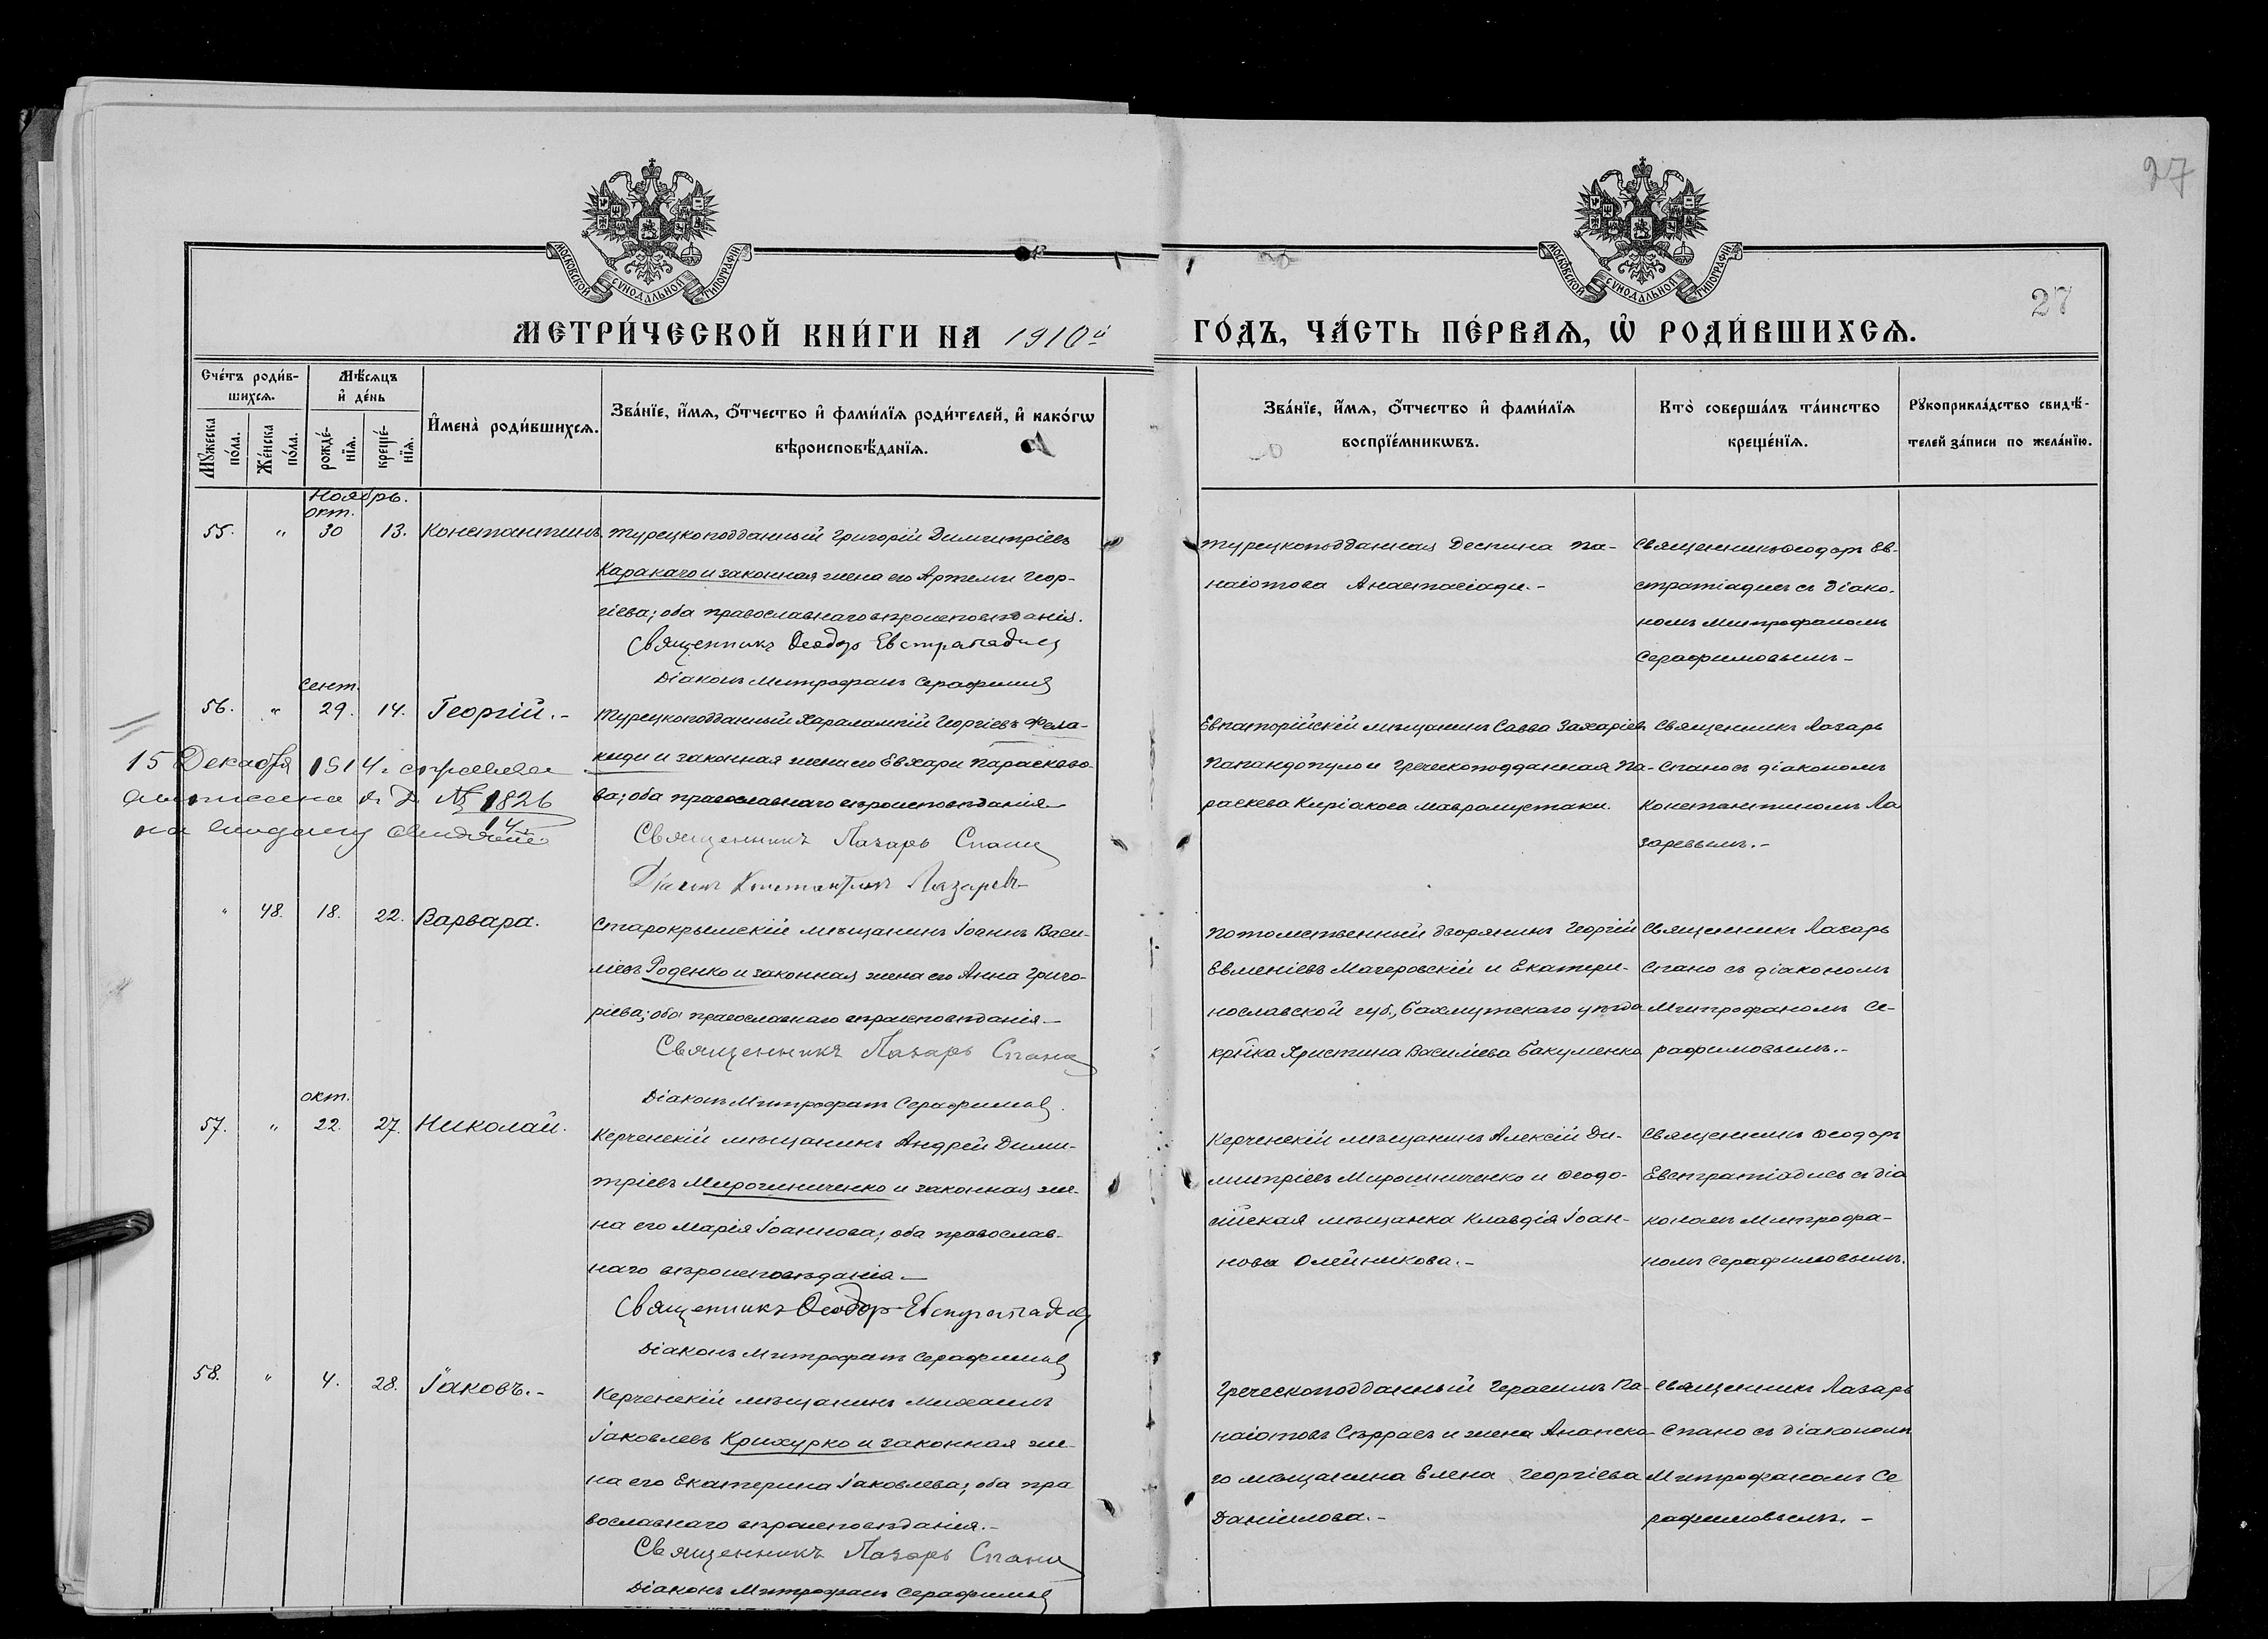 27
МОСКОВСКОЙ СѴНОДАЛЬНОЙ ТИПОГРАФІИ
МОСКОВСКОЙ СѴНОДАЛЬНОЙ ТИПОГРАФІИ
27
МЕТРИ́ЧЕСКОЙ КНИ́ГИ НА 1910й ГО́ДЪ, ЧА́СТЬ ПЕ́РВАѦ, Ѽ РОДИ́ВШИХСѦ.
Счéтъ роди́в-
шихсѧ.
Мѣ́сѧцъ
и҆ дéнь
Мꙋ́жеска по́ла.
Жéнска по́ла.
рождé-
нїѧ.
крещé-
нїѧ.
И҆мена̀ роди́вшихсѧ.
Зва́нїе, и҆́мѧ, ѻ҆́тчество и҆ фами́лїѧ роди́телей, и҆ како́гѡ
вѣроисповѣ́данїѧ.
Зва́нїе, и҆́мѧ, ѻ҆́тчество и҆ фами́лїѧ
воспрїéмникѡвъ.
Кто̀ соверша́лъ та́инство
крещéнїѧ.
Рꙋкоприкла́дство свидѣ́-
телей за́писи по жела́нїю.
Ноябрь.
окт.
55. " 30 13. Константинъ
Турецкоподданный Григорій Димитріевъ
Каракаго и законная жена его Артеми Геор-
гіева; оба православнаго вѣроисповѣданія.
Священникъ Ѳеодор Евстратіадис
Діаконъ Митрофанъ Серафимов
Турецкоподданная Деспина Па-
наіотова Анастасіади.-
Священникъ Ѳеодоръ Ев-
стратіадисъ съ діако-
номъ Митрофаномъ
Серафимовымъ-
сент.
56. " 29. 14. Георгій.-
Турецкоподданный Харалампій Георгіевъ Фела-
киди и законная жена его Евхари Параскево-
ва; оба православнаго вѣроисповѣданія-
Священникъ Лазарь Спано
Діаконъ Константинъ Лазаревъ
Евпаторійскій мѣщанинъ Савва Захаріевъ
Папандопуло и греческоподданная Па-
раскева Киріакова Мавромустаки.
Священникъ Лазарь
Спано съ діакономъ
Константиномъ Ла
заревымъ.-
15 Декабря 1914 г.
№ 1826
14
" 48. 18. 22. Варвара.
Старокрымскій мѣщанинъ Іоаннъ Васи-
ліевъ Роденко и законная жена его Анна Григо-
ріева; оба православнаго вѣроисповѣданія-
Священникъ Лазарь Спано
Діаконъ Митрофанъ Серафимов
Потомственный дворянинъ Георгій
Евменіевъ Мачеровскій и Екатери-
нославской губ., Бахмутскаго уѣзда
кр-ка Христина Василіева Бакуменко
Священникъ Лазарь
Спано съ діакономъ
Митрофаномъ Се-
рафимовымъ.-
окт.
57. " 22. 27. Николай.
Керченскій мѣщанинъ Андрей Дими-
тріевъ Мирошниченко и законная же-
на его Марія Іоаннова; оба православ-
наго вѣроисповѣданія-
Священникъ Ѳеодор Евстратіадис
Діаконъ Митрофанъ Серафимов
Керченскій мѣщанинъ Алексій Ди-
митріевъ Мирошниченко и Ѳеодо-
сійская мѣщанка Клавдія Іоан-
нова Олейникова.-
Священникъ Ѳеодоръ
Евстратіадисъ съ діа
кономъ Митрофа-
номъ Серафимовымъ.
58. " 4. 28. Іаковъ.-
Керченскій мѣщанинъ Михаилъ
Іаковлевъ Крихурко и законная же-
на его Екатерина Іаковлева; оба пра
вославнаго вѣроисповѣданія.-
Священникъ Лазарь Спано
Діаконъ Митрофанъ Серафимов
Греческоподданный Герасимъ Па-
наіотовъ Сѣрраевъ и жена Ананска-
го мѣщанина Елена Георгіева
Даніилова.-
Священникъ Лазарь
Спано съ діакономъ
Митрофаномъ Се
рафимовымъ.-